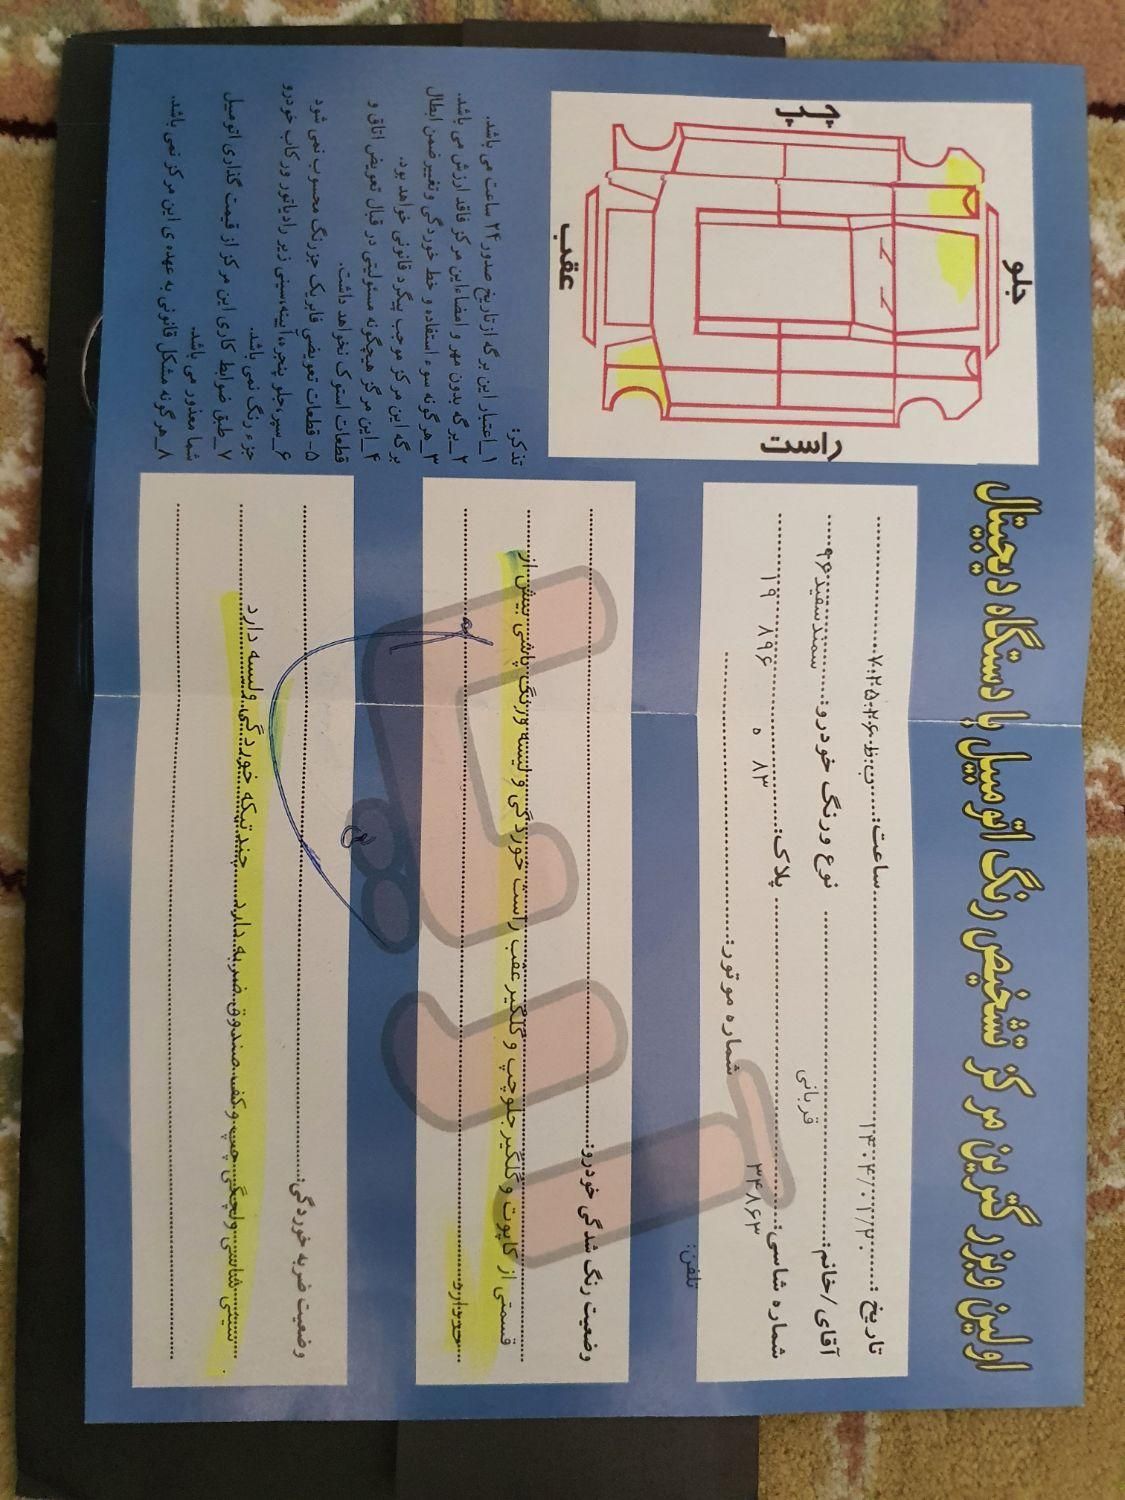 اولین و بزرگترین مرکز تشخیص رنگ اتومبیل با دستگاه دیجیتال
تاریخ: ۱۴۰۴/۰۱/۳۰ ساعت: ب.ظ ۷:۲۵:۲۶
آقای/خانم: قربانی نوع ورنگ خودرو: سمند سفید ۹۶
شماره شاسی: ۳۴۸۶۳ پلاک: ۸۳ ه ۸۹۶ ۱۹
شماره موتور:
تلفن:
وضعیت رنگ شدگی خودرو:
قسمتی از کاپوت و گلگیر جلو چپ و گلگیر عقب راست خوردگی و لیسه ورنگ پاشی بیش از
حد دارد
وضعیت ضربه خوردگی:
سینی شاسی ولچکی چپ وکف صندوق ضربه دارد چند تیکه خوردگی ولیسه دارد
جلو
چپ
راست
عقب
تذکر:
۱_اعتبار این برگه از تاریخ صدور ۲۴ ساعت می باشد.
۲_برگه بدون مهر و امضاءاین مرکز فاقد ارزش می باشد.
۳_هرگونه سوء استفاده و خط خوردگی وتغییر ضمن ابطال
برگه این مرکز موجب پیگرد قانونی خواهد بود.
۴_این مرکز هیچگونه مسئولیتی در قبال تعویض اتاق و
قطعات استوک نخواهد داشت.
۵- قطعات تعویضی فابریک جزرنگ محسوب نمی شود
۶_سپر،جلو پنجره،آیینه،سینی زیر رادیاتور ورکاب خودرو
جزء رنگ نمی باشد.
۷_طبق ضوابط کاری این مرکز از قیمت گذاری اتومبیل
شما معذور می باشد.
۸_هرگونه مشکل قانونی به عهده ی این مرکز نمی باشد.